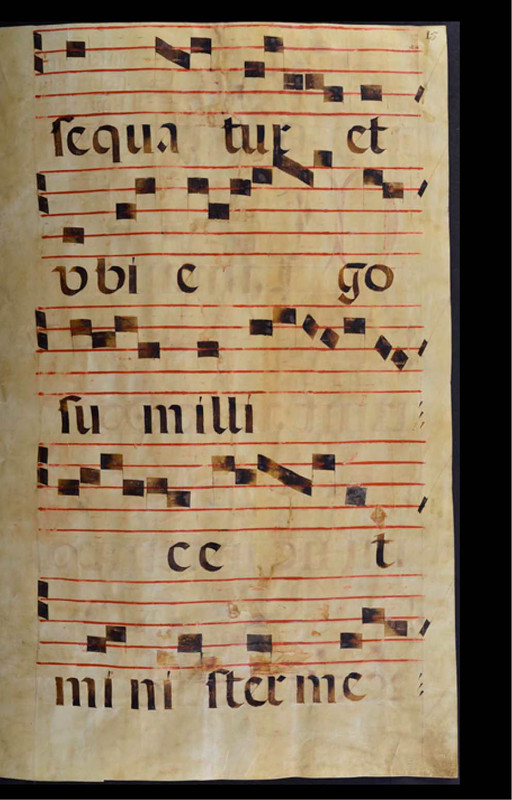 ſequa tur et
vbi e go
ſu m illi
c e t
mi ni ſter me